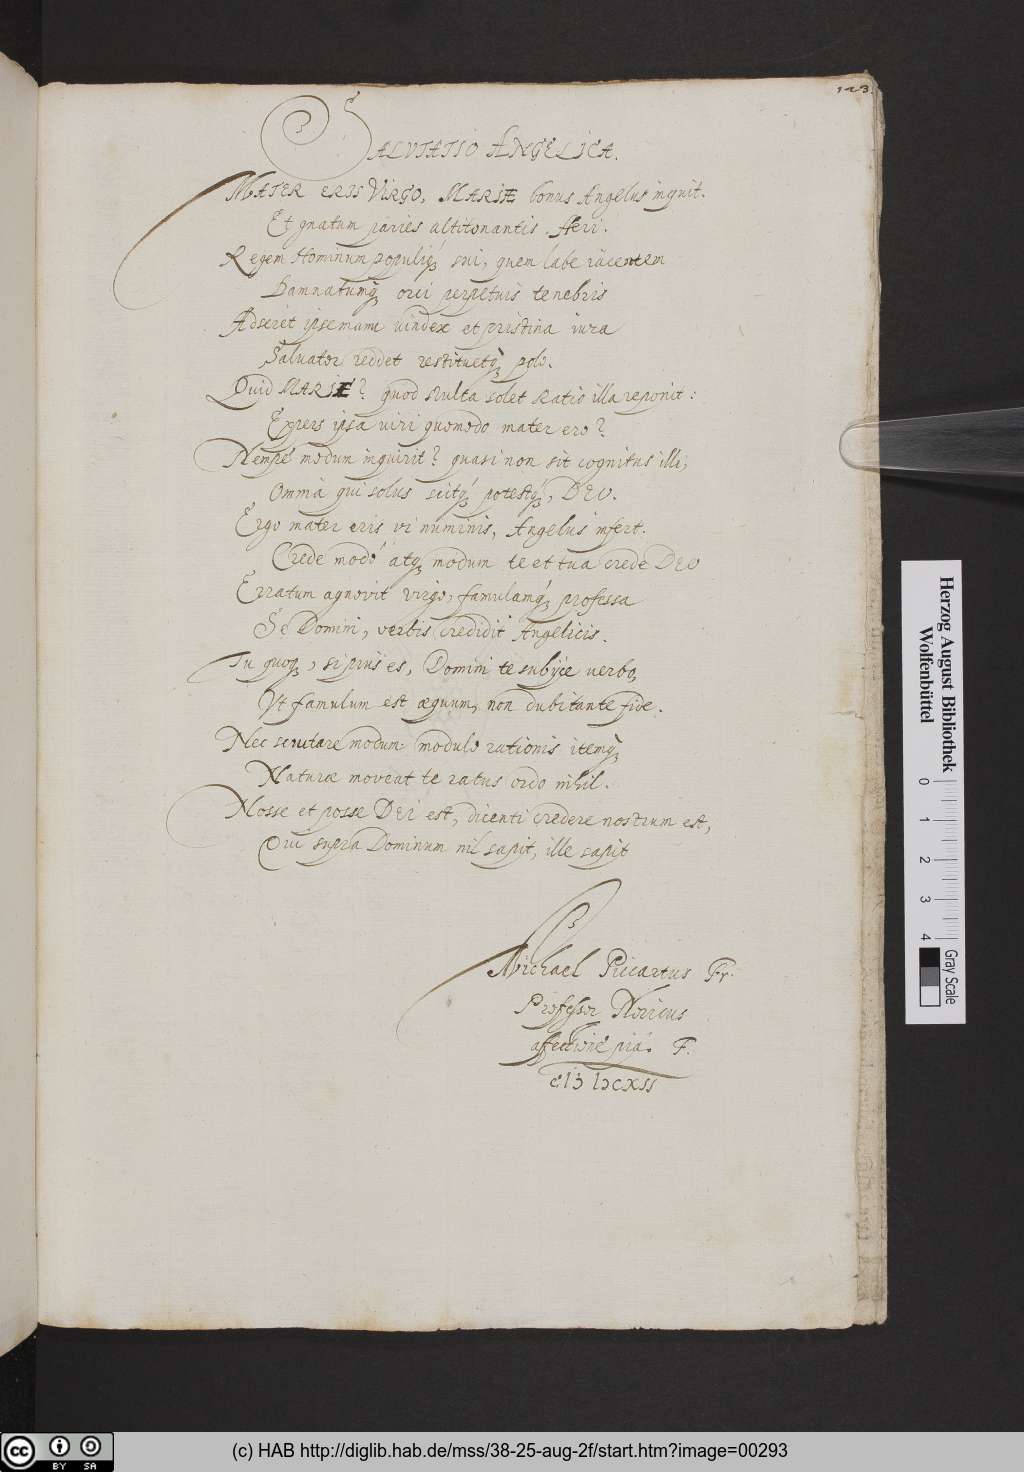 123.
SALVTATIO ANGELICA.
MATER ERIS VIRGO, MARIÆ bonus Angelus inquit.
Et gnatum paries altitonantis Heri.
Regem Hominum populiq́; sui, quem labe iacentem
Damnatumq́; orci perpetuis tenebris
Adseret ipse manu uindex et pristina iura
Saluator reddet restituetq́; polo.
Quid MARIÆ? quod stulta solet Ratio illa reponit:
Expers ipsa uiri quomodo mater ero?
Nempe modum inquirit? quasi non sit cognitus illi,
Omnia qui solus scitq́; potestq́;, DEO.
Ergo mater eris vi numinis, Angelus infert.
Crede modò atq; modum te et tua crede DEO
Erratum agnovit virgo, famulamq́; professa
Se Domini, verbis credidit Angelicis.
Tu quoq;, si pius es, Domini te subijce verbo,
Vt famulum est æquum, non dubitante fide.
Nec scrutare modum: modulo rationis itemq́;
Naturæ moveat te ratus ordo nihil.
Nosse et posse DEI est, dicenti credere nostrum est,
Qui supra Dominum nil sapit, ille sapit
Michael Piccartus Fr.
Professor Noricus
affectione pia. F.
cIↄ Iↄcxii
Herzog August Bibliothek
Wolfenbüttel
0 1 2 3 4
Gray Scale
cc BY SA
(c) HAB http://diglib.hab.de/mss/38-25-aug-2f/start.htm?image=00293